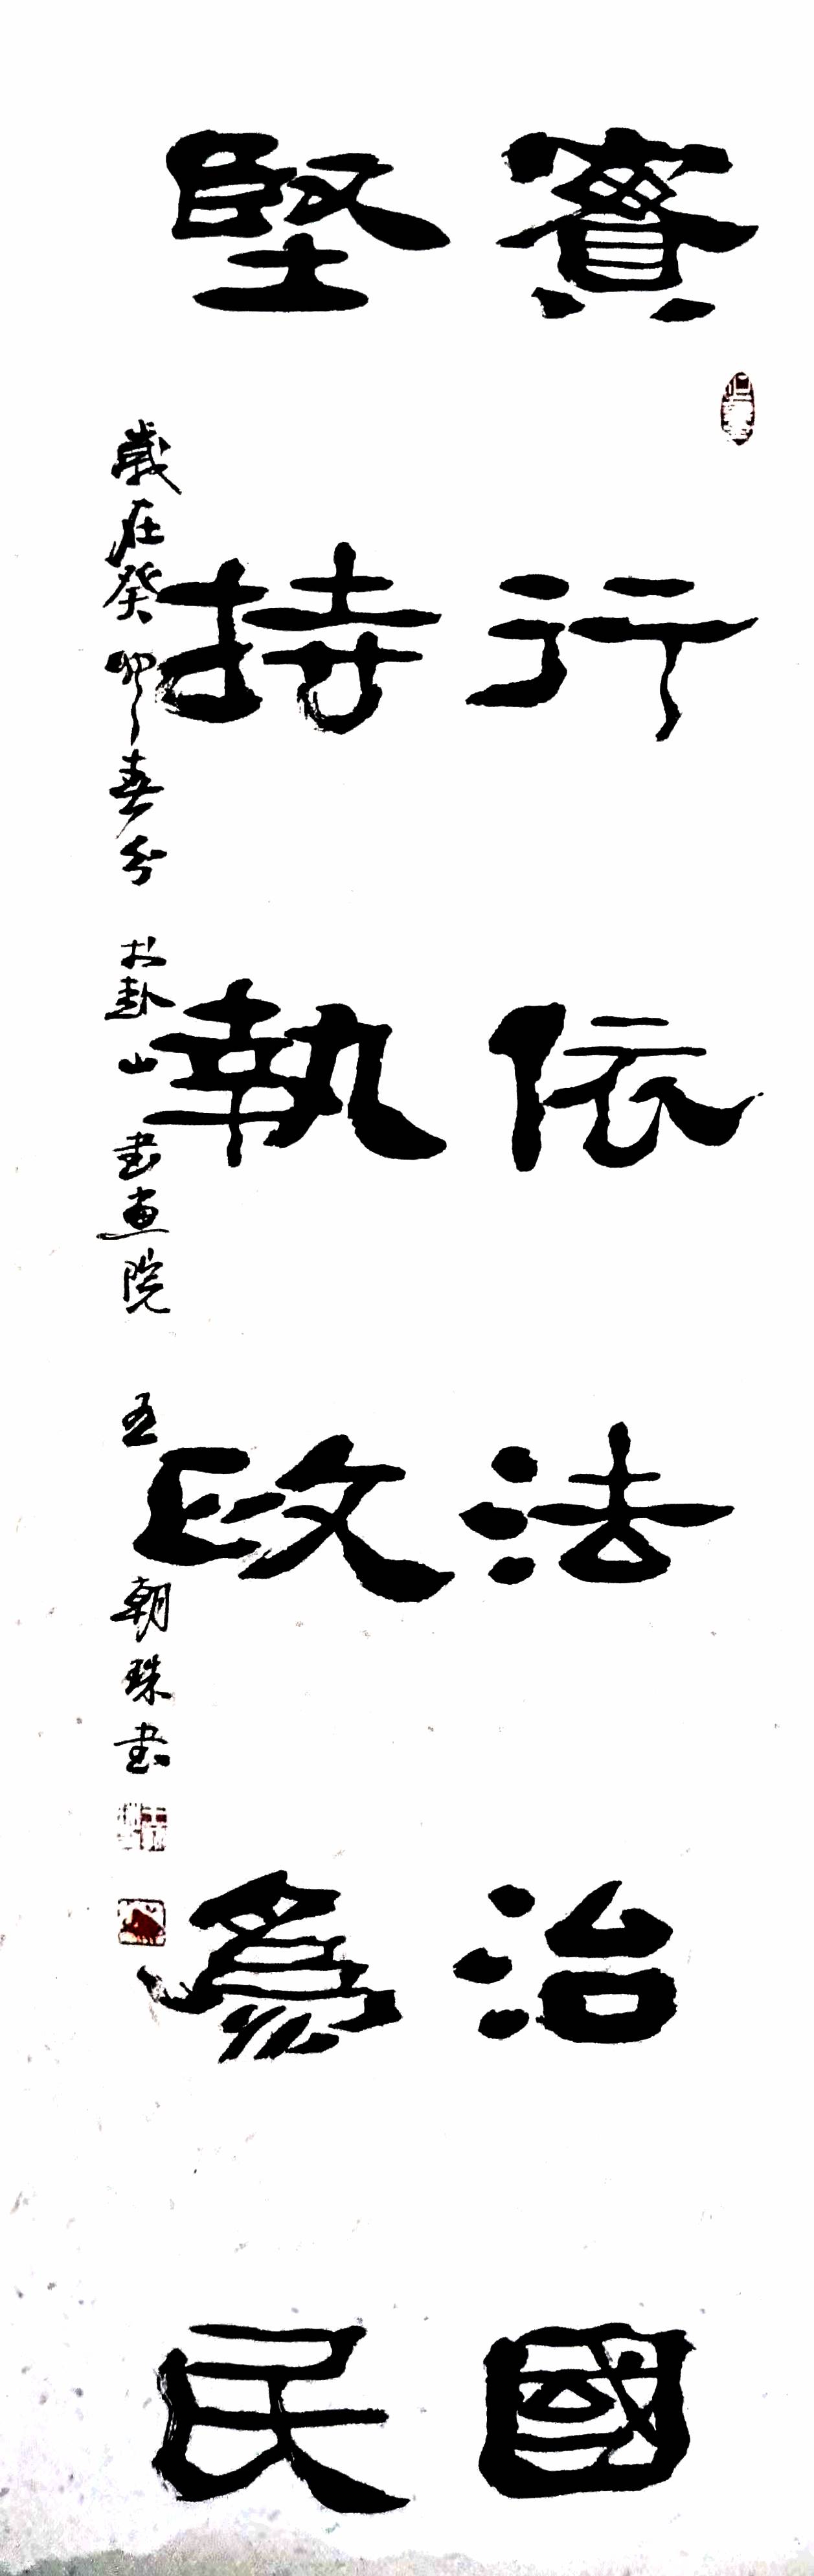 實行依法治國
堅持執政為民
歲在癸卯春分 大卦山 書画院 王 朝珠書